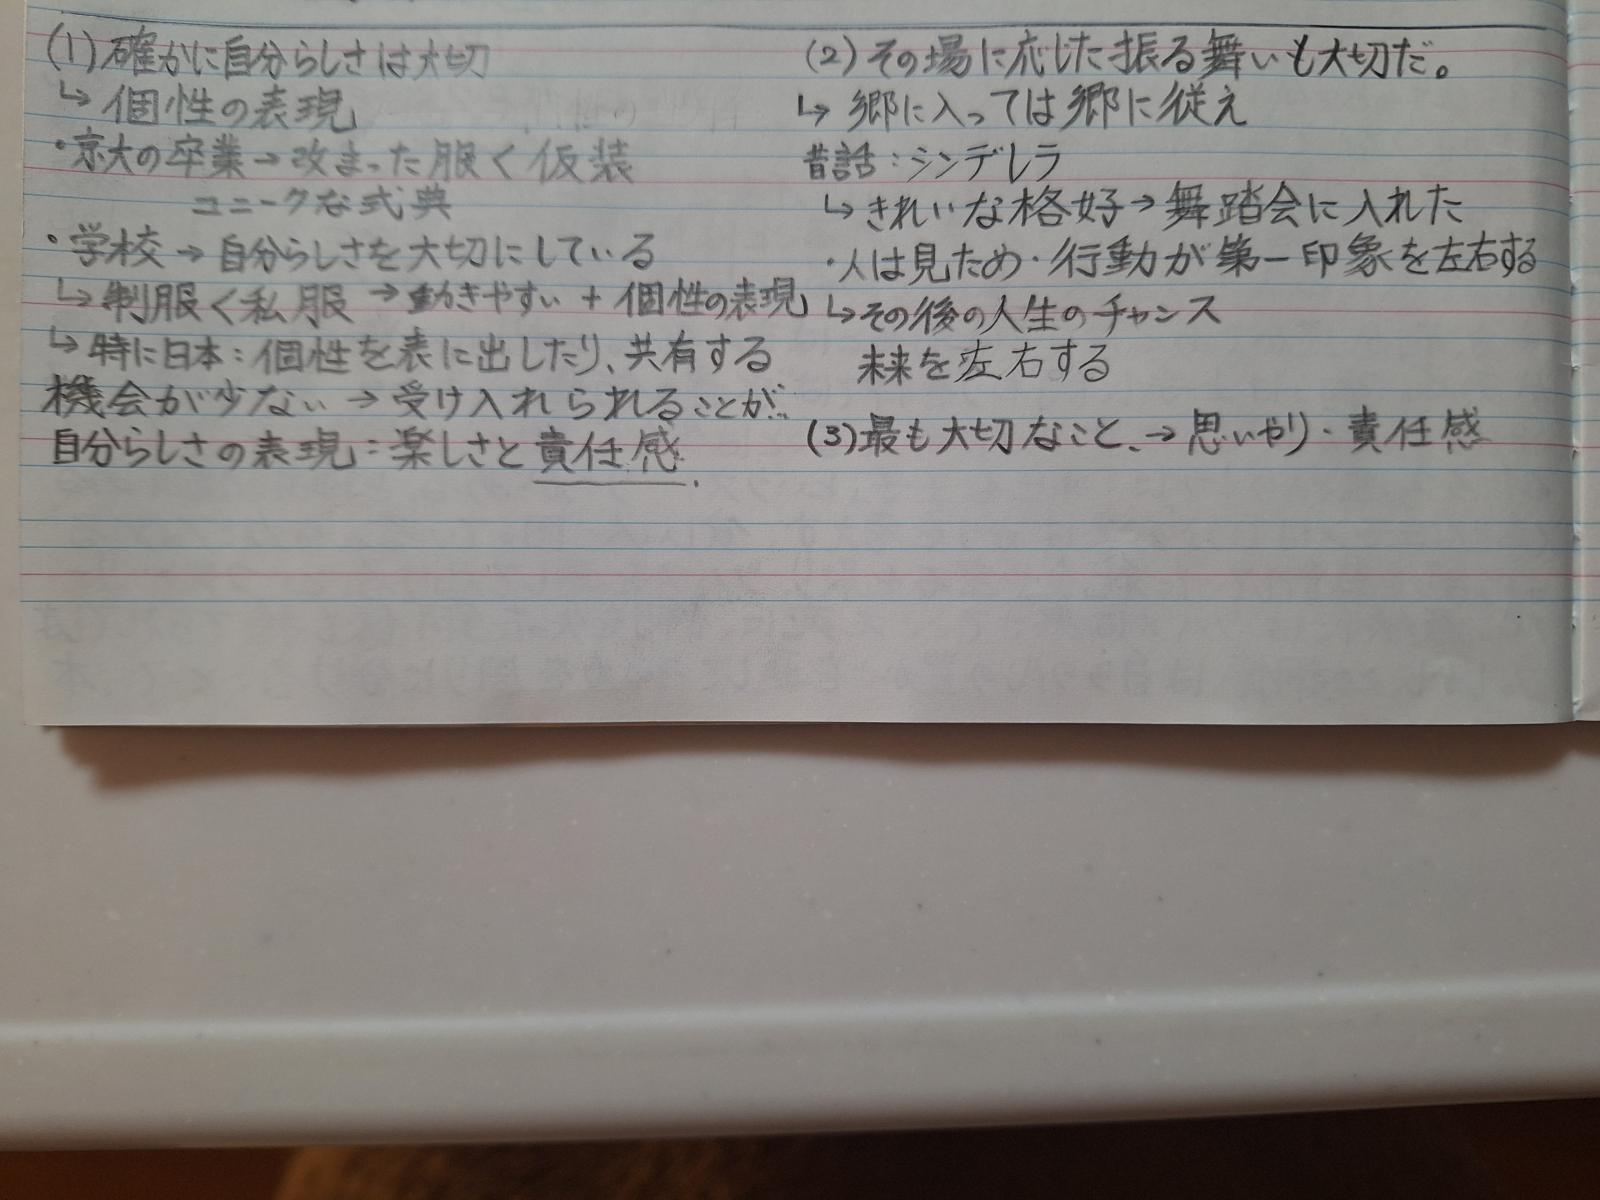 (1) 確かに自分らしさは大切
↳ 個性の表現
・京大の卒業→改まった服く仮装
ユニークな式典
・学校→自分らしさを大切にしている
↳制服く私服 →動きやすい + 個性の表現
↳特に日本：個性を表に出したり、共有する
機会が少ない → 受け入れられることが…
自分らしさの表現：楽しさと責任感.
(2) その場に応じた振る舞いも大切だ。
↳ 郷に入っては郷に従え
昔話：シンデレラ
↳きれいな格好→舞踏会に入れた
・人は見ため・行動が第一印象を左右する
↳その後の人生のチャンス
未来を左右する
(3)最も大切なこと、→ 思いやり・責任感